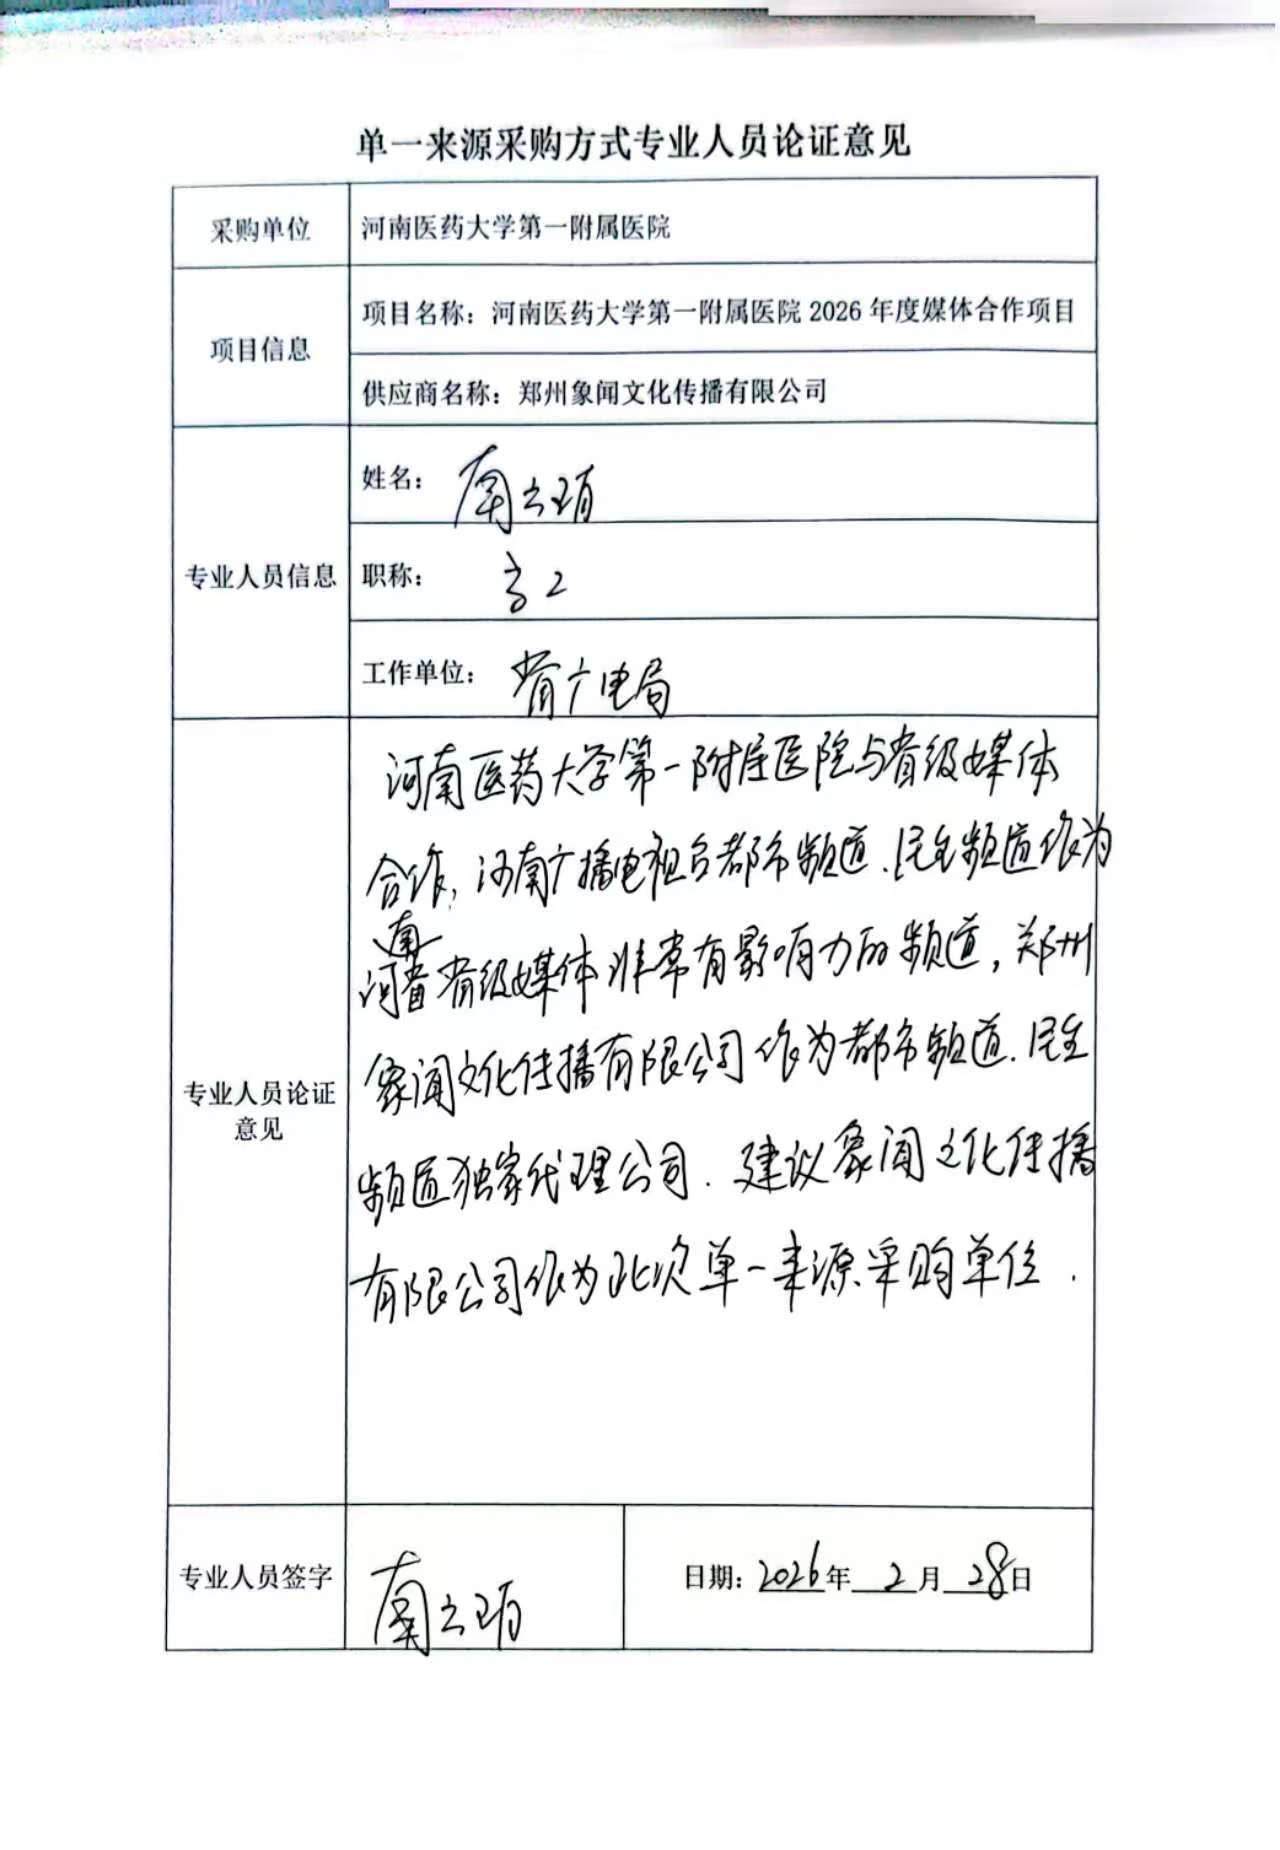 单一来源采购方式专业人员论证意见
采购单位
河南医药大学第一附属医院
项目信息
项目名称：河南医药大学第一附属医院 2026 年度媒体合作项目
供应商名称：郑州象闻文化传播有限公司
专业人员信息
姓名：
职称：高工
工作单位：省广电局
专业人员论证
意见
河南医药大学第一附属医院与省级媒体
合作，河南广播电视台都市频道、民生频道作为
南
河省级媒体非常有影响力的频道，郑州
象闻文化传播有限公司作为都市频道、民生
频道独家代理公司．建议象闻文化传播
有限公司作为此次单一来源采购单位．
专业人员签字
日期：2026年 2 月 28日